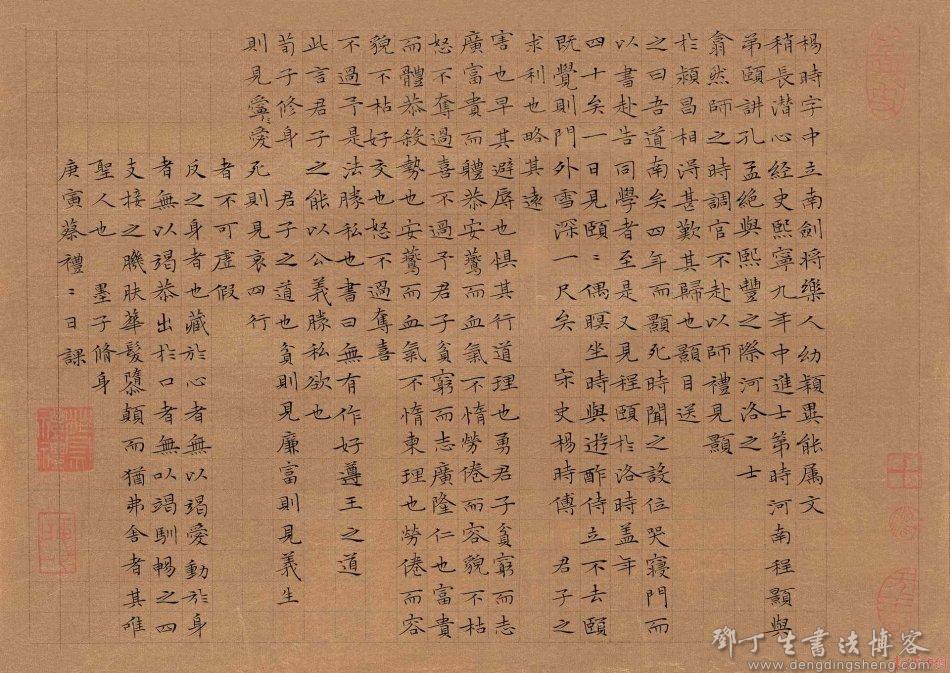 楊時字中立南劍将樂人幼穎異能属文
稍長潜心经史熙寧九年中進士第時河南程顥與
弟頤講孔孟絶與熙豐之際河洛之士
翕然師之時調官不赴以師禮見顥
於穎昌相淂甚歡其歸也顥目送
之曰吾道南矣四年而顥死時聞之設位哭寢門而
以書赴告同學者至是又見程頤於洛時盖年
四十矣一日見頤〻偶瞑坐時與遊酢侍立不去頤
既覺則門外雪深一尺矣 宋史楊時傳 君子之
求利也略其遠
害也早其避辱也惧其行道理也勇君子貧窮而志
廣富貴而軆恭安鷰而血氣不惰勞倦而容貌不枯
怒不奪過喜不過予君子貧窮而志廣隆仁也富貴
而體恭殺勢也安鷰而血氣不惰柬理也勞倦而容
貌不枯好交也怒不過奪喜
不過予是法勝私也書曰無有作好遵王之道
此言君子之能以公義勝私欲也
荀子修身 君子之道也貧則見廉富則見義生
則見愛〻 死則見哀四行
者不可虛假
反之身者也藏於心者無以竭愛動於身
者無以竭恭出於口者無以竭馴暢之四
支接之機肤華髮隳顛而猶弗舍者其唯
聖人也 墨子脩身
庚寅蔡禮〻日課
鄧丁生書法博客
www.dengdingsheng.com